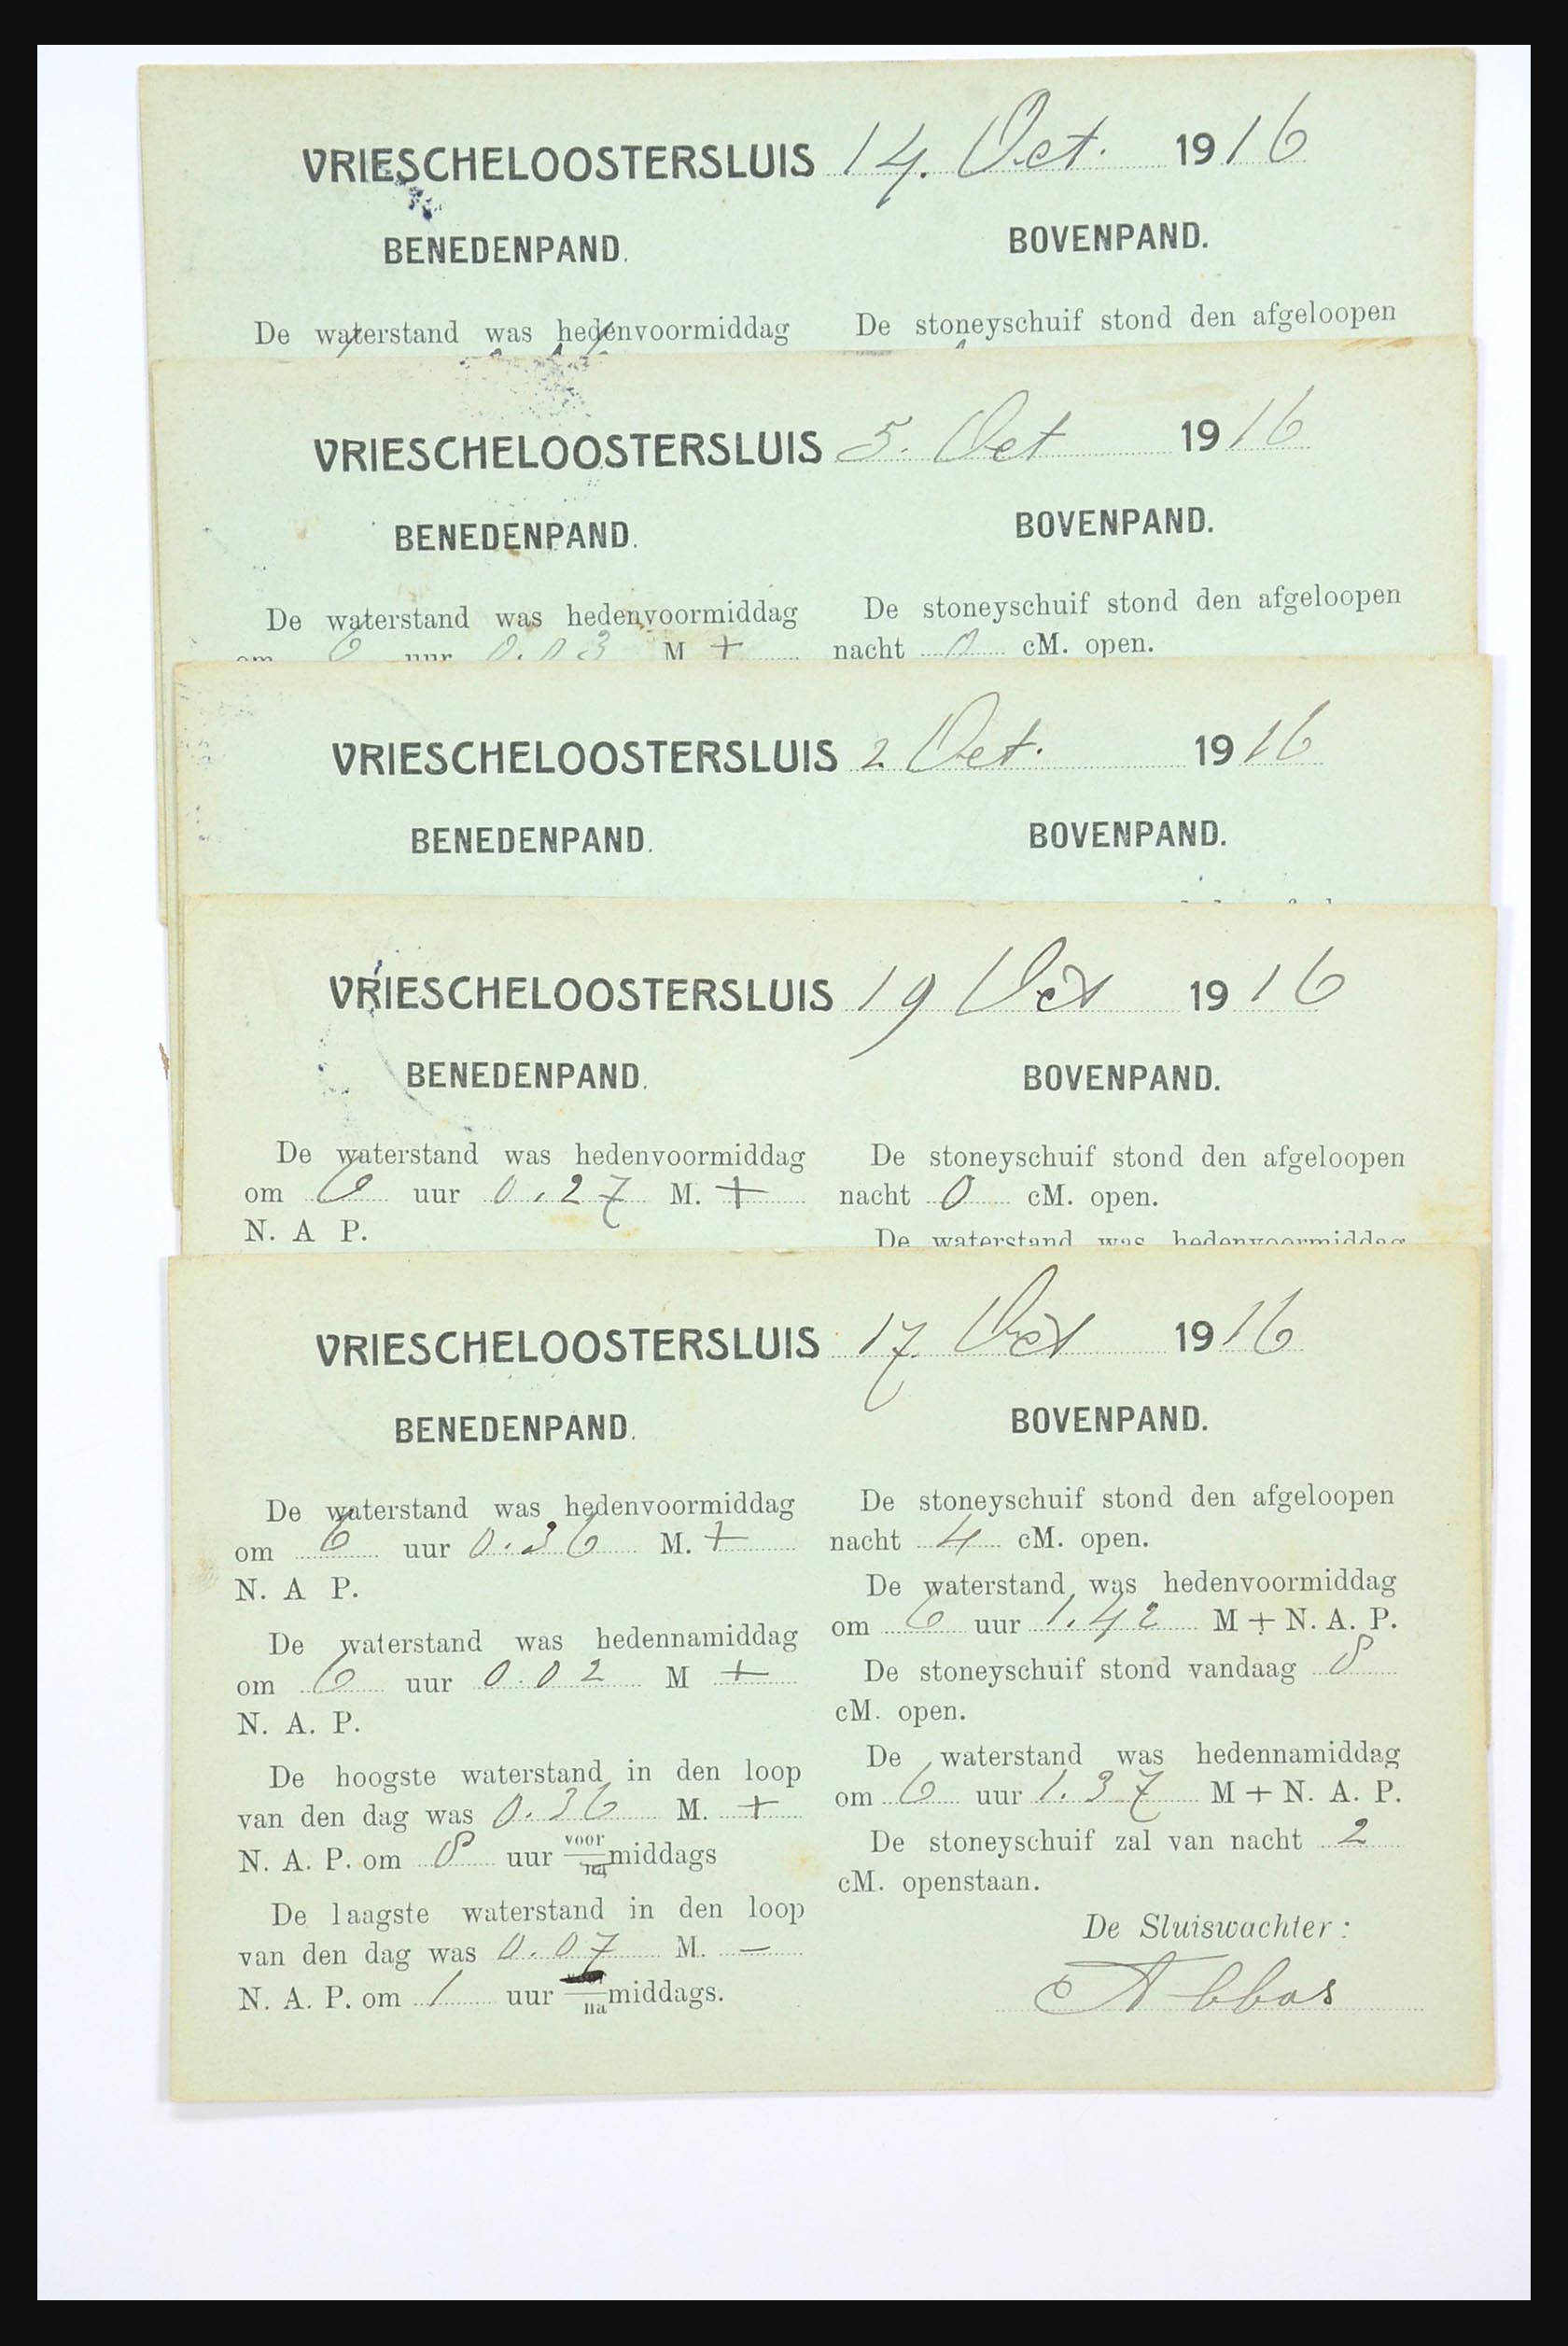 VRIESCHELOOSTERSLUIS 14. Oct. 1916
BENEDENPAND.
De waterstand was hedenvoormiddag
BOVENPAND.
De stoneyschuif stond den afgeloopen
VRIESCHELOOSTERSLUIS 5. Oct 1916
BENEDENPAND.
De waterstand was hedenvoormiddag
om 6 uur 0.03 M +
BOVENPAND.
De stoneyschuif stond den afgeloopen
nacht 0 cM. open.
VRIESCHELOOSTERSLUIS 2 Oct. 1916
BENEDENPAND.
BOVENPAND.
VRIESCHELOOSTERSLUIS 19 Oct 1916
BENEDENPAND.
De waterstand was hedenvoormiddag
om 6 uur 0.27 M. +
N. A P.
BOVENPAND.
De stoneyschuif stond den afgeloopen
nacht 0 cM. open.
De waterstand was hedenvoormiddag
VRIESCHELOOSTERSLUIS 17 Oct 1916
BENEDENPAND.
De waterstand was hedenvoormiddag
om 6 uur 0.36 M. +
N. A P.
De waterstand was hedennamiddag
om 6 uur 0.02 M +
N. A. P.
De hoogste waterstand in den loop
van den dag was 0.36 M. +
N. A. P. om 8 uur voor/na middags
De laagste waterstand in den loop
van den dag was 0.07 M. —
N. A. P. om 1 uur na middags.
BOVENPAND.
De stoneyschuif stond den afgeloopen
nacht 4 cM. open.
De waterstand was hedenvoormiddag
om 6 uur 1.42 M + N. A. P.
De stoneyschuif stond vandaag 8
cM. open.
De waterstand was hedennamiddag
om 6 uur 1.37 M + N. A. P.
De stoneyschuif zal van nacht 2
cM. openstaan.
De Sluiswachter:
Abbas